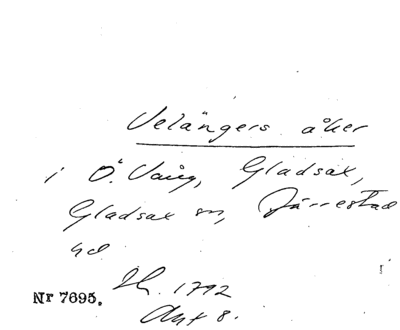 Velängers åker
i Ö. Vång, Gladsax,
Gladsax sn, Järrestad
hd
Sk. 1792
Akt 8.
Nr 7695.